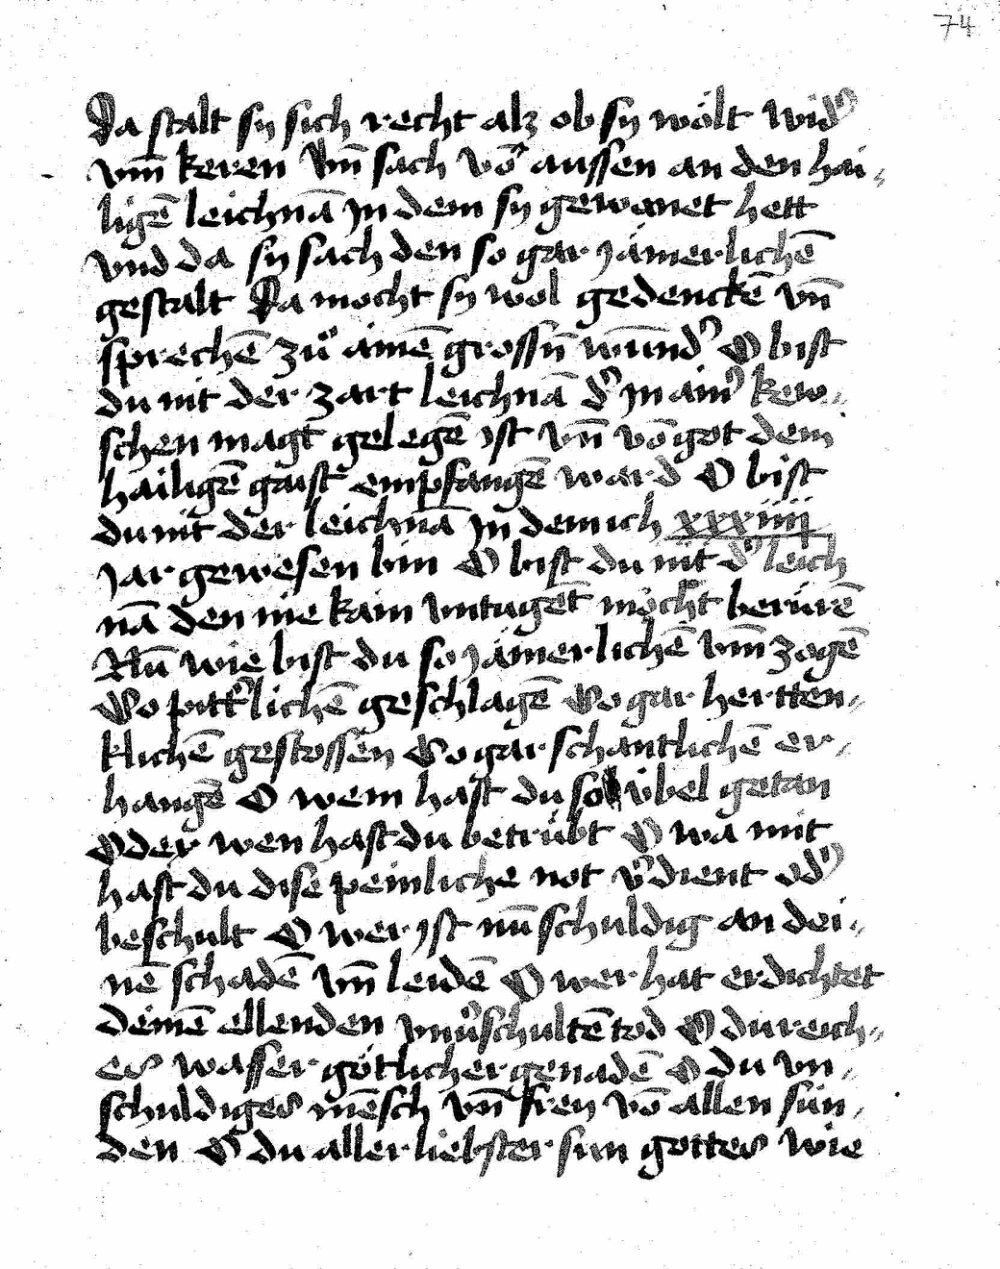 74
Da stalt sy sich recht alz ob sy wölt wid᾽
vm̄ keren Vn̄ sach vō aussen an den hai-
ligē leichnā Jn dem sy gewonet hett
vnd da sy sach den so gar jämerlichē
gestalt Da mocht sy wol gedenckē vn̄
sprechē zů ainē grossn̄ wund᾽ O bist
du nit der zart leichnā d᾽ Jn ain᾽ kew-
schen magt gelegē ist vn̄ vō got dem
hailigē gaist empfangē ward O bist
du nit der leichnā Jn dem ich xxxiiij
Jar gewesen bin O bist du nit d᾽ leich
nā den nie kain vntugēt möcht berürē
Nū wie bist du so jämerlichē vm̄zogē
So pitt᾽lichē geschlagē So gar hertten-
klichē gestossen So gar schantlichē er-
hangē O wem hast du so übel getan
Oder wen hast du betrübt O wa mit
hast du dise peinliche not v᾽dient od᾽
beschult O wer ist nū schuldig an dei-
nē schadē vn̄ leidē O wer hat erdichtet
deinē ellenden vnv᾽schultē tod O du reich-
es wasser götlicher genadē O du vn-
schuldiges mēsch vn̄ frey vō allen sün-
den O du aller liebster sun gottes wie